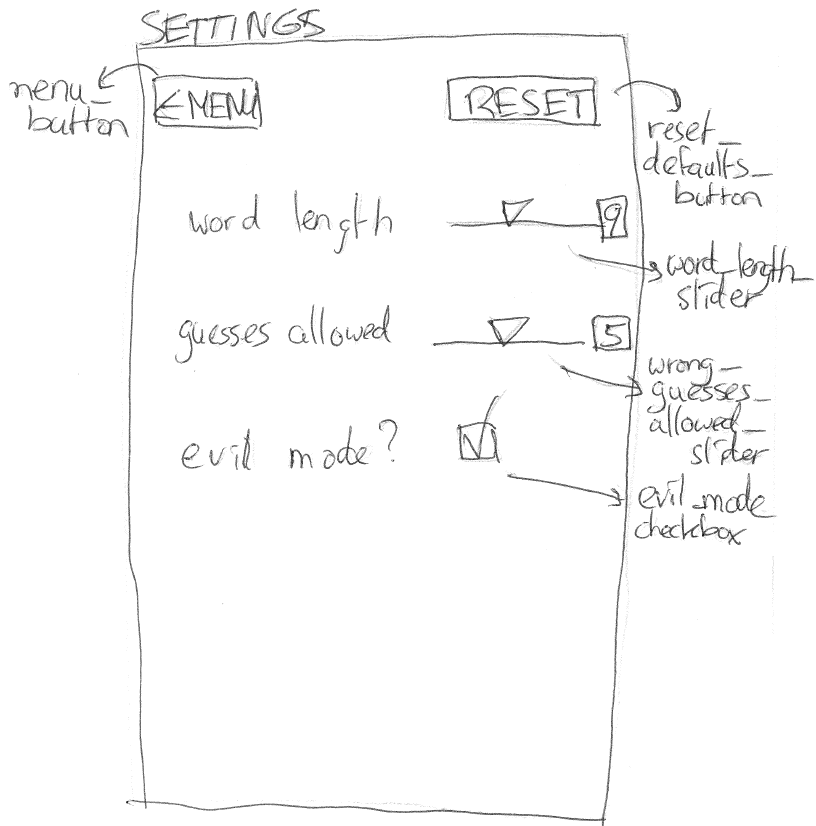 SETTINGS
menu_
button
← MENU
RESET
reset_
defaults_
button
word length
9
word_length_
slider
guesses allowed
5
wrong_
guesses_
allowed_
slider
evil mode?
evil_mode
checkbox